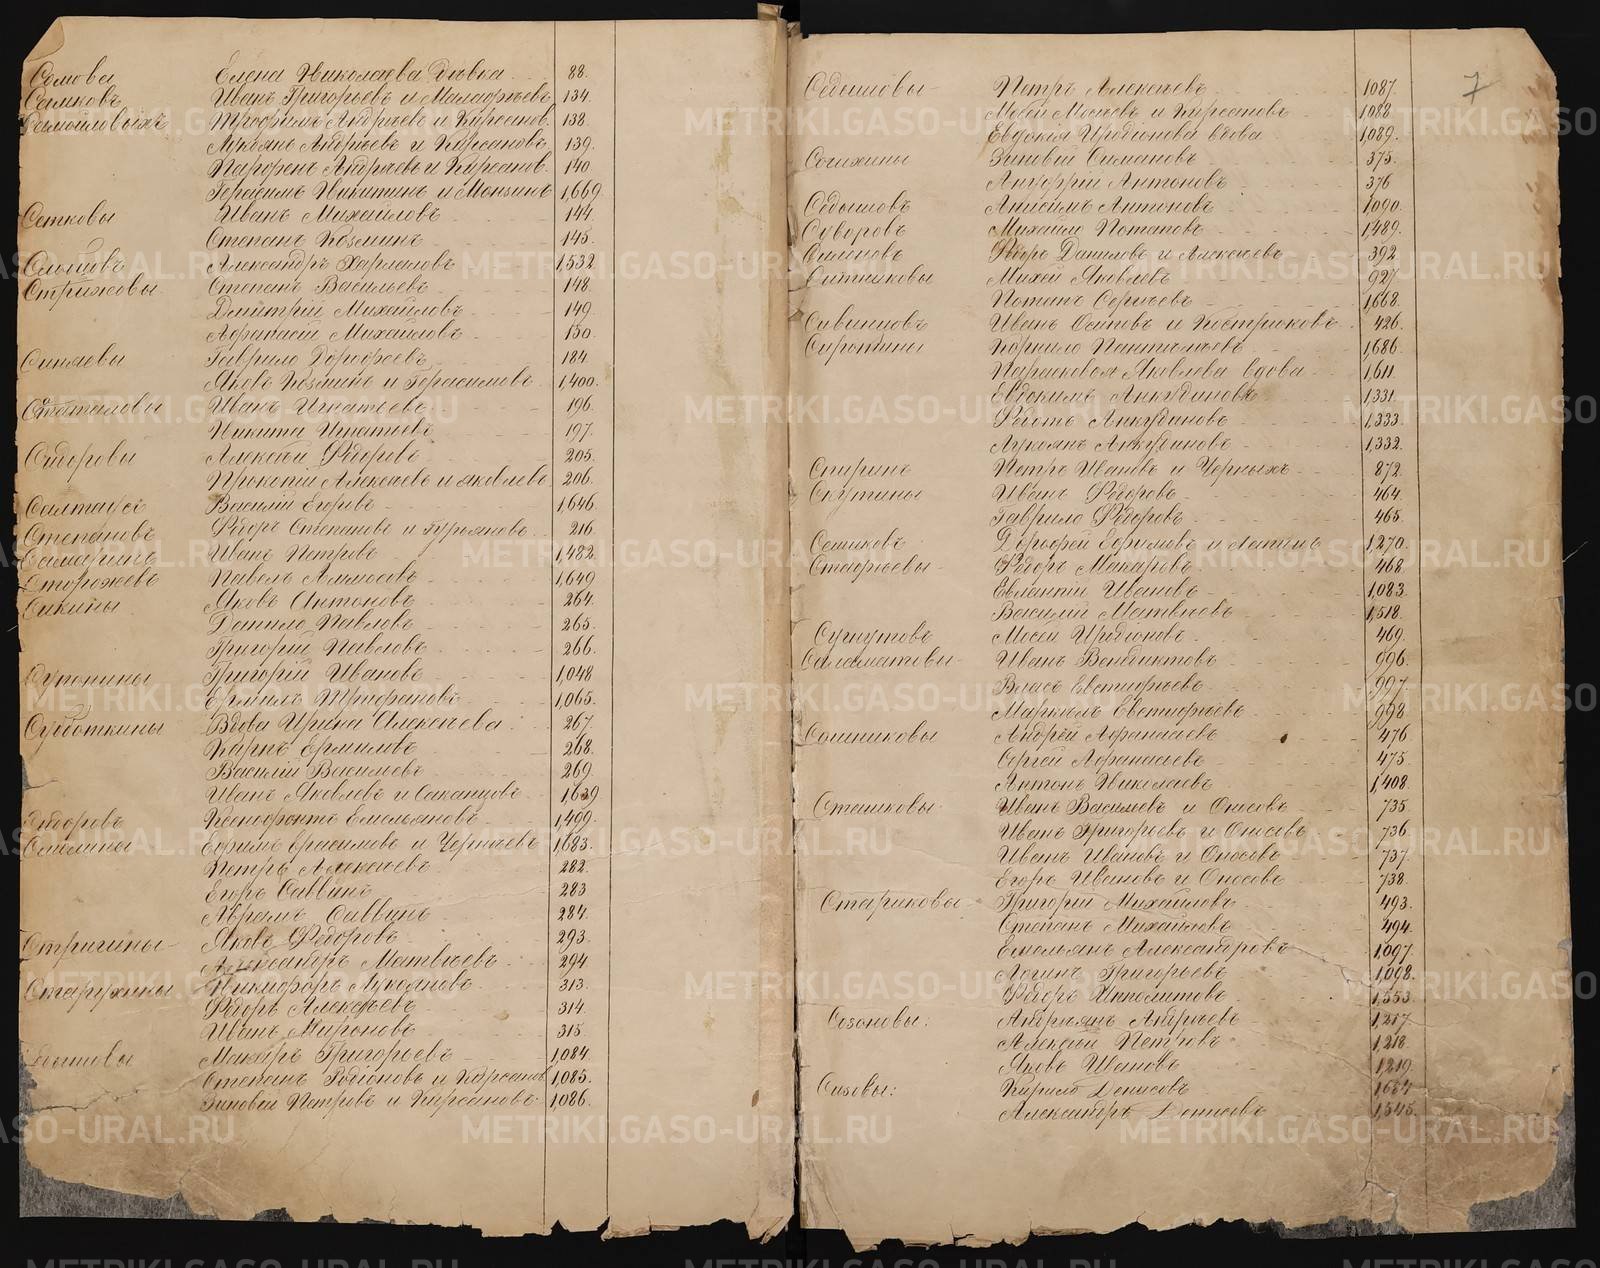 Семовы Елена Николаева Дѣвка 88.
Сынковъ Иванъ Григорьевъ и 134.
Самойловыхъ Трофимъ Андрѣевъ и Кирсанов. 138.
Лукоянъ Андрѣевъ и Кирсановъ 139.
Парфенъ Андрѣевъ и Кирсанов. 140
Герасимъ Никитинъ и 1,669.
Сетковы Иванъ Михайловъ 144.
Степанъ Козминъ 145.
Александръ Харламовъ 1,532.
Стрижовы Степанъ Васильевъ 148.
Дмитрій Михайловъ 149.
Афанасій Михайловъ 150.
Синяевы Гаврило Дорофеевъ 184
Яковъ Козминъ и Герасимовъ 1,400.
Иванъ Игнатьевъ 196.
Никита Игнатьевъ 197.
Сидоровы Алексѣй Ѳедоровъ 205.
Прокопій Алексѣевъ и Яковлевъ 206.
Василій Егоровъ 1,646.
Степановъ Ѳедоръ Степановъ и Гурьяновъ 216.
Самаринъ Иванъ Петровъ 1,482.
Сторожевъ Павелъ Аммосовъ 1,649
Сикины Яковъ Антоновъ 264.
Данило Павловъ 265.
Григорій Павловъ 266.
Супонины Григорій Ивановъ 1,048
Ермилъ Трифановъ 1,065.
Субботкины Вдова Ирина Алексѣева 267.
Карпъ Ермиловъ 268.
Василій Васильевъ 269
Иванъ Яковлевъ и 1,639
Сидоровъ Ксенофонтъ Емельяновъ 1,499.
Ефимъ Герасимовъ и Черняевъ 1,683.
Петръ Алексѣевъ 282.
Егоръ Саввинъ 283
Абрамъ Саввинъ 284.
Стригины Яковъ Ѳедоровъ 293.
Александръ Матвѣевъ 294
Старухины Никифоръ Лукояновъ 313.
Ѳедоръ Алексѣевъ 314.
Иванъ Мироновъ 315
Макаръ Григорьевъ 1,084.
Степанъ Родіоновъ и Кирсанов 1,085.
Зиновей Петровъ и Кирсановъ 1,086.
7
Седышовы Петръ Алексѣевъ 1087.
Мосѣевъ и Кирсановъ 1,088.
Евдокія Иродіонова вдова 1,089.
Сочихины Зиновій Симановъ 375.
Антоновъ 376
Седышовъ Анисимъ Антоновъ 1,090.
Суворовъ Михайло Потаповъ 1,489.
Силоновъ Ѳедоръ Даниловъ и Алексѣевъ 392
Ситниковы Михей Яковлевъ 927
Потапъ Сергѣевъ 1,668.
Сивинцовъ Иванъ Осиповъ и Костриковъ 426.
Сиротины Корнило Пантилѣевъ 1,686.
Парасковья Яковлева вдова 1,611.
Евдокимъ Анкудиновъ 1,331
Ѳедотъ Анкудиновъ 1,333.
Лукоянъ Анкудиновъ 1,332.
Спиринъ Петръ Ивановъ и Черныхъ 872.
Скутины Иванъ Ѳедоровъ 464.
Гаврило Ѳедоровъ 465.
Сешковъ Дорофей Ефимовъ и Лапинъ 1,270.
Стафѣевы Ѳедоръ Макаровъ 468.
Евлантій Ивановъ 1,083.
Василій Матвѣевъ 1,518.
Сунгутовъ Мосѣй Иродіоновъ 469.
Саламатовы Иванъ Венедиктовъ 996.
Власъ Евстифѣевъ 997
Маркелъ Евстифѣевъ 998.
Сошниковы Андрей Афанасьевъ 476.
Сергѣй Афанасьевъ 475.
Антонъ Николаевъ 1,408.
Сташковы Иванъ Васильевъ и Оносовъ 735.
Иванъ Григорьевъ и Оносовъ 736.
Иванъ Ивановъ и Оносовъ 737.
Егоръ Ивановъ и Оносовъ 738.
Стариковы Григорій Михайловъ 493.
Степанъ Михайловъ 494.
Емельянъ Александровъ 1,097.
Логинъ Григорьевъ 1,098.
Ѳедоръ Ипполитовъ 1,553.
Созоновы: Андріянъ Андрѣевъ 1,217
Алексѣй Петровъ 1,218.
Яковъ Ивановъ 1,219.
Сизовы: Кирило Денисовъ
Александръ Денисовъ 1,545.